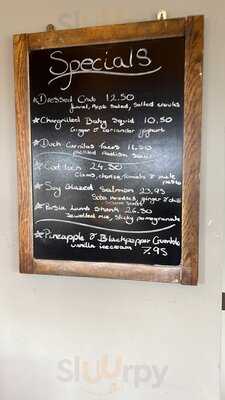 Specials
Dressed Crab 12.50
Fennel, Apple Salad, Salted crouts
Chargrilled Baby Squid 10.50
Ginger & coriander yoghurt
Duck Carnitas Tacos 16.50
pickled Radish
Cod Loin 24.50
Clams, chorizo, tomato & mole
Soy Glazed Salmon 23.95
Soba noodles, ginger & chilli
Persia Lamb Shank 26.50
Jewelled rice, sticky pomegranate
Pineapple & Blackpepper Crumble
vanilla icecream 7.95
Sluurpy